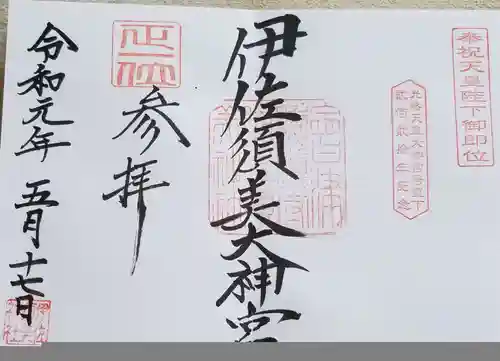 奉祝天皇陛下御即位
伊佐須美大神宮
正一位
参拝
令和元年 五月十七日